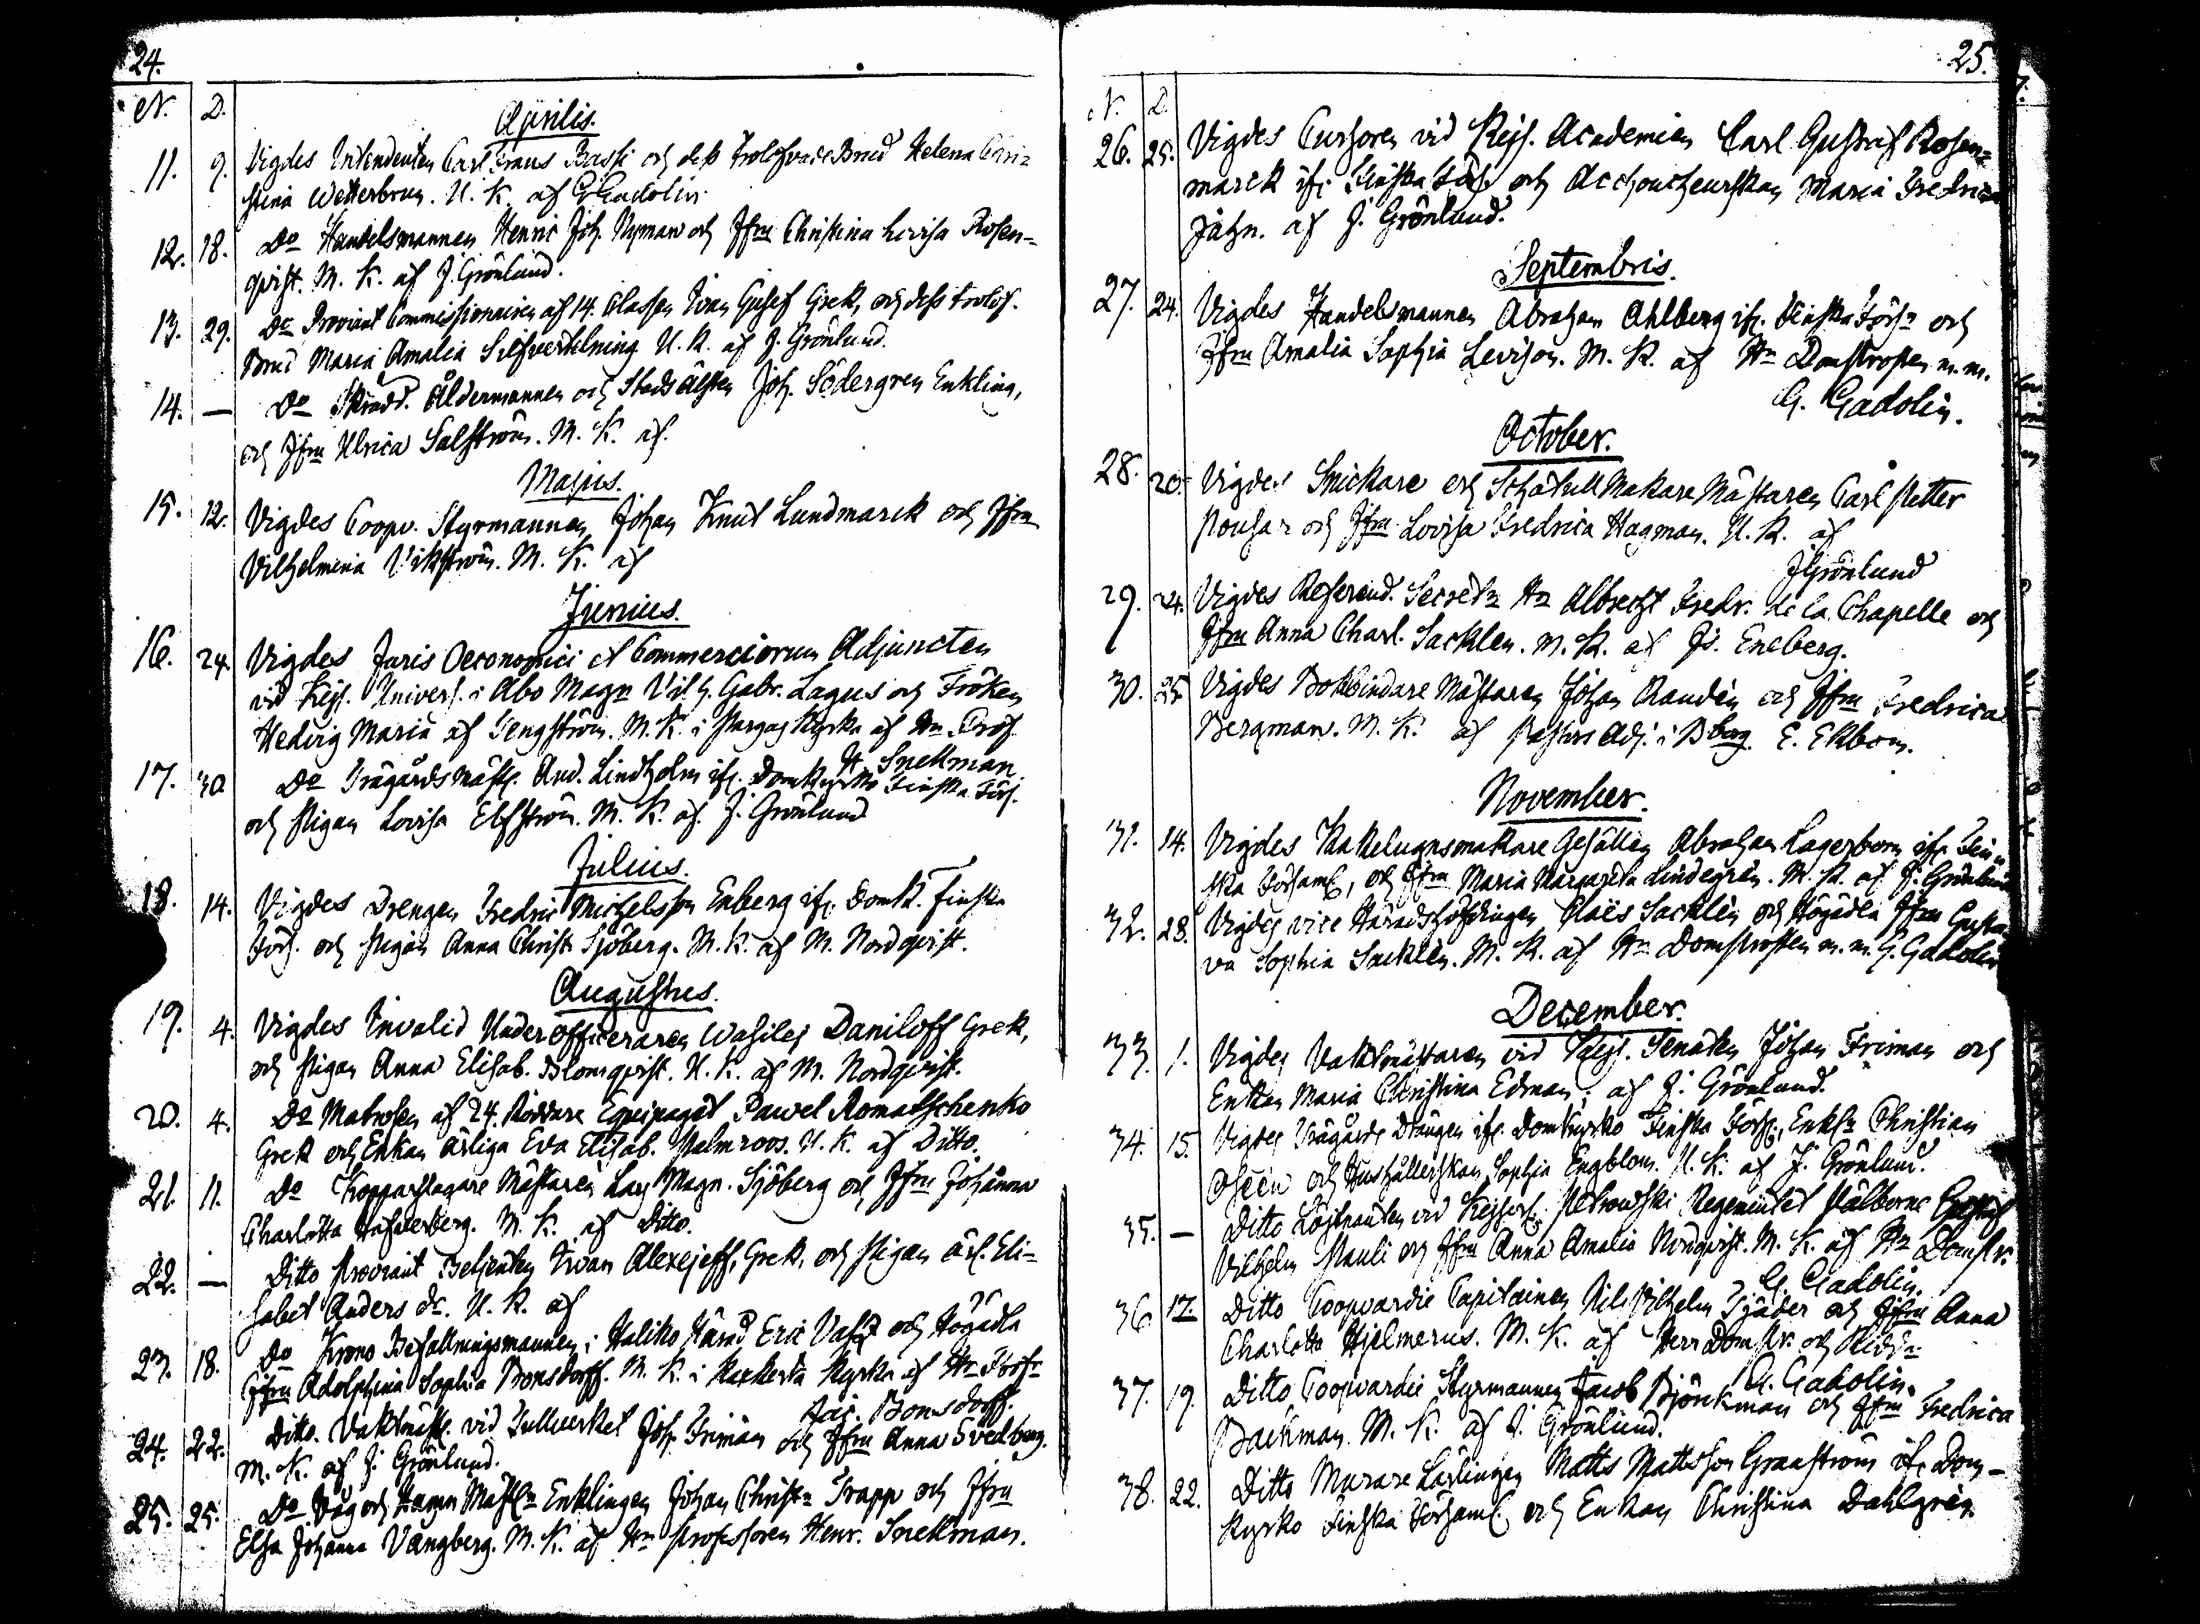 24.
N. D.
Aprilis.
11. 9. Vigdes Intendenten Carl Frans Bassi och dess Trolofvade Brud Helena Chri=
stina Wetterbrun. U. K. af G. Gadolin.
12. 18. Do Handelsmannen Henric Joh. Nyman och Jfru Christina Lovisa Rosen=
qvist. M. K. af J. Grönlund.
13. 29. Do Proviant Commissionairen af 14. Classen Ivan Gusef Grek, och dess trolof.
Brud Maria Amalia Silfvertelning U. K. af J. Grönlund.
14. — Do Skrädd. Åldermannen och Stads älsten Joh. Södergren Enkling,
och Jfru Ulrica Salström. M. K. af.
Majus.
15. 12. Vigdes Coopv. Styrmannen Johan Knut Lundmarck och Jfru
Vilhelmina Vikström. M. K. af
Junius.
16. 24. Vigdes Juris Oeconomici et Commerciorum Adjuncten
vid Kejs. Univers. i Åbo Magr Vilh. Gabr. Lagus och Fröken
Hedvig Maria af Tengström. M. K. i Pargas Kyrka af Hr Prof.
H. Snellman
17. 30 Do Trägårdsmäst. And. Lindholm ifr. Domkyrko Finska Förs.
och Pigan Lovisa Elfström. M. K. af J. Grönlund
Julius.
18. 14. Vigdes Drengen Fredric Michelsson Enberg ifr. Domk. Finska
Förs. och Pigan Anna Christ. Sjöberg. M. K. af M. Nordqvist.
Augustus.
19. 4. Vigdes Invalid Underofficeraren Wasilej Daniloff Grek,
och Pigan Anna Elisab. Blomqvist. U. K. af M. Nordqvist.
20. 4. Do Matrosen af 24. Roddare Equipaget Pawel Romatschenko
Grek och Enkan ärliga Eva Elisab. Malmroos. U. K. af Ditto.
21. 11. Do Kopparslagare Mästaren Lars Magn. Sjöberg och Jfru Johanna
Charlotta M. K. af Ditto.
22. — Ditto Proviant Betjenten Ivan Alexejeff, Grek, och Pigan ärl. Eli=
sabet Anders dr. U. K. af
23. 18. Do Krono Befallningsmannen i Haliko Härad Eric och Högädla
Jfru Adolphina Sophia Bonsdorff. M. K. i Kyrka af Hr
Jac. Bonsdorff.
24. 22. Ditto. Vaktmäst. vid Tullverket Joh. Friman och Jfru Anna Svedberg.
M. K. af J. Grönlund.
25. 25. Do Våg och Hamn Mästr Enklingen Johan Christr Trapp och Jfru
Elsa Johanna Vängberg. M. K. af Hr Professoren Henr. Snellman.
25.
N. D.
26. 25. Vigdes Cursoren vid Kejs. Academien Carl Gustaf Rosen=
marck ifr. Finska Förs. och Accoucheurskan Maria Fredrica
Jahn. af J. Grönlund.
Septembris.
27. 24. Vigdes Handelsmannen Abraham Ahlberg ifr. Finska Försr och
Jfru Amalia Sophia Levison. M. K. af Hr Domprosten m.m.
G. Gadolin.
October.
28. 20. Vigdes Snickare och Schatull Makare Mästaren Carl Petter
Pousar och Jfru Lovisa Fredrica Hagman. U. K. af
J Grönlund
29. 24. Vigdes Referend. Secretr Hr Albrecht Fredr. de la Chapelle och
Jfru Anna Charl. Sacklen. M. K. af Js. Eneberg.
30. 25 Vigdes Bokbindare Mästaren Johan Randèn och Jfru Fredrica
Bergman. M. K. af Pastors Adj. i Bberg E. Ekbom.
November.
31. 14. Vigdes Kakelugnsmakare Gesällen Abraham Lagerbom ifr. Fin=
ska Församl., och Jfru Maria Margareta Lindegrèn. M. K. af J. Grönlund
32. 28. Vigdes vice Häradshöfdingen Claës Sacklèn och Högädla Jfru Gusta
va Sophia Sacklèn. M. K. af Hr Domprosten m.m. G. Gadolin
December.
33. 1. Vigdes Vaktmästaren vid Kejs. Senaten Johan Friman och
Enkan Maria Christina Edman, af J. Grönlund.
34. 15. Vigdes Trägårds Drängen ifr. Domkyrko Finska Förs., Enklr Christian
och Hushållerskan Sophia Engblom. U. K. af J. Grönlund.
35. — Ditto Löjtnanten vid Kejserl. Petrowski Regementet Välborne Gustaf
Vilhelm Pauli och Jfru Anna Amalia Nordqvist. M. K. af Hr Dompr.
G. Gadolin.
36. 17. Ditto Coopvardie Capitainen Nils Vilhelm Sjöder och Jfru Anna
Charlotta Hjelmerus. M. K. af Herr Dompr. och Riddr
G. Gadolin.
37. 19. Ditto Coopvardie Styrmannen Jacob Björkman och Jfru Fredrica
Backman. M. K. af J. Grönlund.
38. 22. Ditto Murare Lärlingen Matts Mattsson Granström ifr. Dom=
kyrko Finska Församl. och Enkan Christina Dahlgrèn.